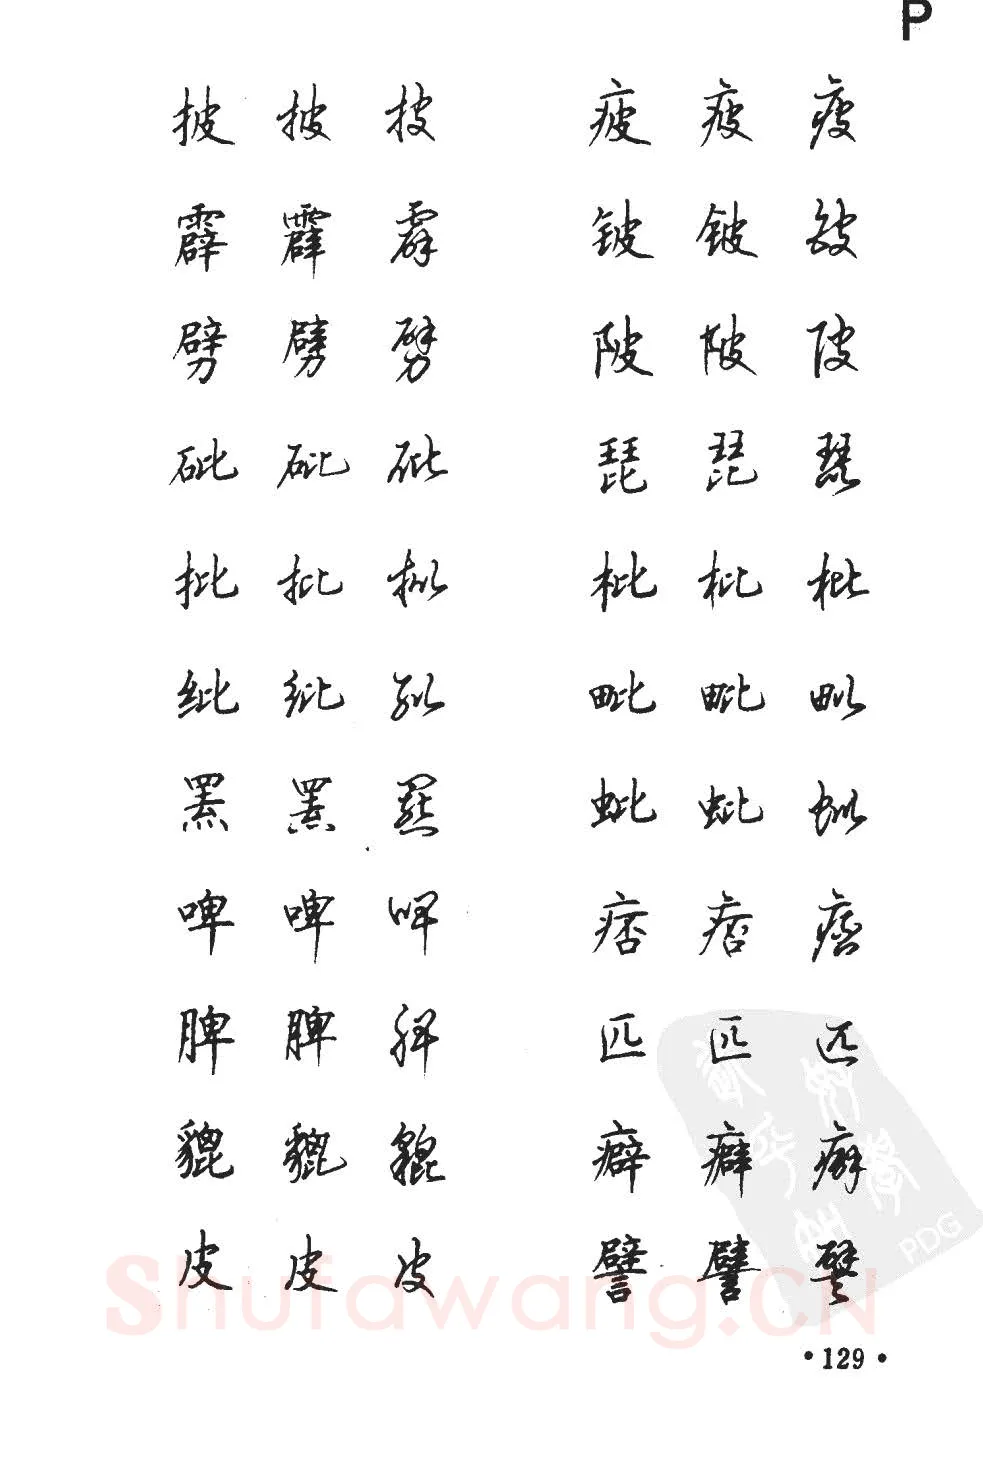 P
披 披 披 疲 疲 疲
霹 霹 霹 铍 铍 铍
劈 劈 劈 陂 陂 陂
砒 砒 砒 琵 琵 琵
批 批 批 枇 枇 枇
纰 纰 纰 毗 毗 毗
罴 罴 罴 蚍 蚍 蚍
啤 啤 啤 痞 痞 痞
脾 脾 脾 匹 匹 匹
貔 貔 貔 癖 癖 癖
皮 皮 皮 譬 譬 譬
PDG
Shufawang.CN
·129·